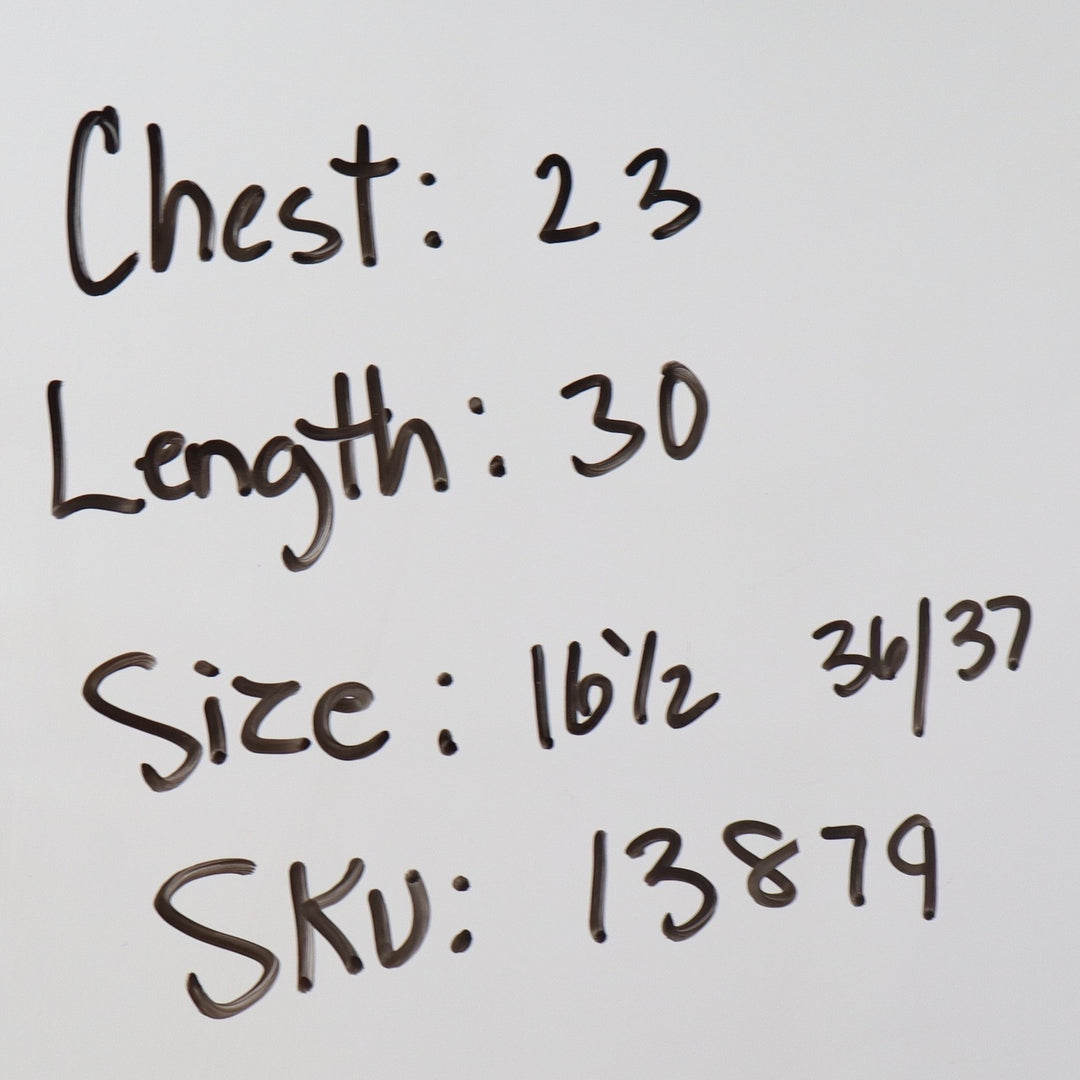 Chest: 23
Length: 30
Size: 16 1/2 36/37
SKU: 13879